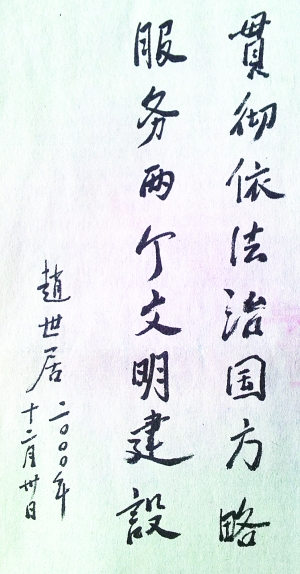 貫彻依法治国方略
服务两个文明建設
趙世居
二〇〇〇年
十二月卅日